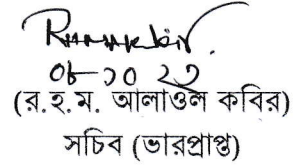 ০৮-১০ ২৩
(র.হ.ম. আলাওল কবির)
সচিব (ভারপ্রাপ্ত)